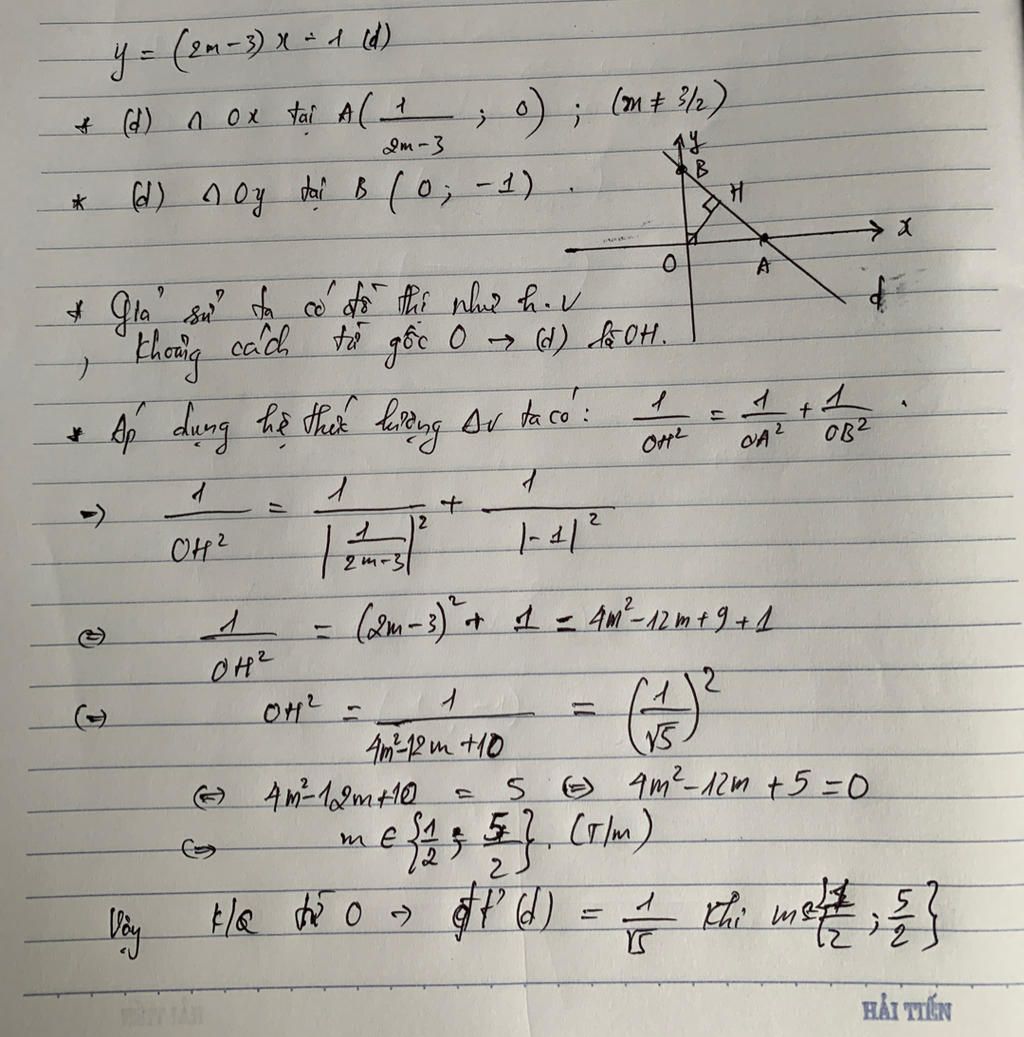 y = (2m-3) x - 1 (d)
* (d) ∩ Ox tại A( 1/(2m-3) ; 0) ; (m ≠ 3/2)
* (d) ∩ Oy tại B ( 0 ; -1) .
y
B
H
x
O
A
d
* Giả sử ta có đồ thị như h.v
, khoảng cách từ gốc O → (d) là OH.
* Áp dụng hệ thức lượng Δv ta có: 1/OH² = 1/OA² + 1/OB² .
→ 1/OH² = 1/|1/(2m-3)|² + 1/|-1|²
⇔ 1/OH² = (2m-3)² + 1 = 4m²-12m+9+1
⇔ OH² = 1/(4m²-12m+10) = (1/√5)²
⇔ 4m²-12m+10 = 5 ⇔ 4m²-12m+5=0
⇔ m ∈ {1/2 ; 5/2}. (T/m)
Vậy k/c từ O → đt (d) = 1/√5 khi m ∈ {1/2 ; 5/2}
HẢI TIẾN